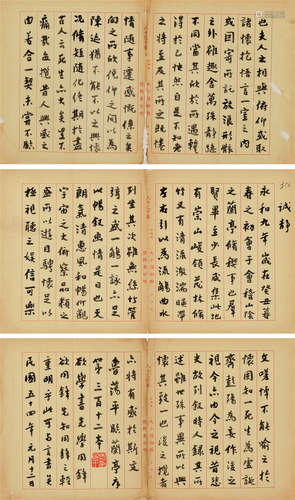 也夫人之相與俯仰或取
諸懷抱悟言一室之內
或因寄所託放浪形骸
之外雖趣舍萬殊靜躁
不同當其欣於所遇暫
得於己快然自足不知老
之將至及其所之既惓
情隨事遷感慨係之矣
向之所欣俛仰之間以為
陳迹猶不能不以之興懷
況脩短隨化終期於盡
古人云死生亦大矣豈不
痛哉每攬昔人興感之
由若合一契未嘗不臨
誠靜
永和九年歲在癸丑暮
春之初會于會稽山陰
之蘭亭脩稧事也群
賢畢至少長咸集此地
有崇山峻領茂林脩
竹又有清流激湍暎帶
左右引以為流觴曲水
列坐其次雖無絲竹管
弦之盛一觴一詠亦足
以暢敘幽情是日也天
朗氣清惠風和暢仰觀
宇宙之大俯察品類之
盛所以遊目騁懷足以
極視聽之娛信可樂
文嗟悼不能喻之於
懷固知一死生為虛誕
齊彭殤為妄作後之
視今亦由今之視昔悲
夫故列敘時人錄其所
述雖世殊事異所以興
懷其致一也後之攬者
亦將有感於斯文
魯蕩平臨蘭亭序
第三百十二本
欲學書先學用鋒
欲用鋒先知用鋒之輕
重明乎此可與言書
民國五十四年元月十二日